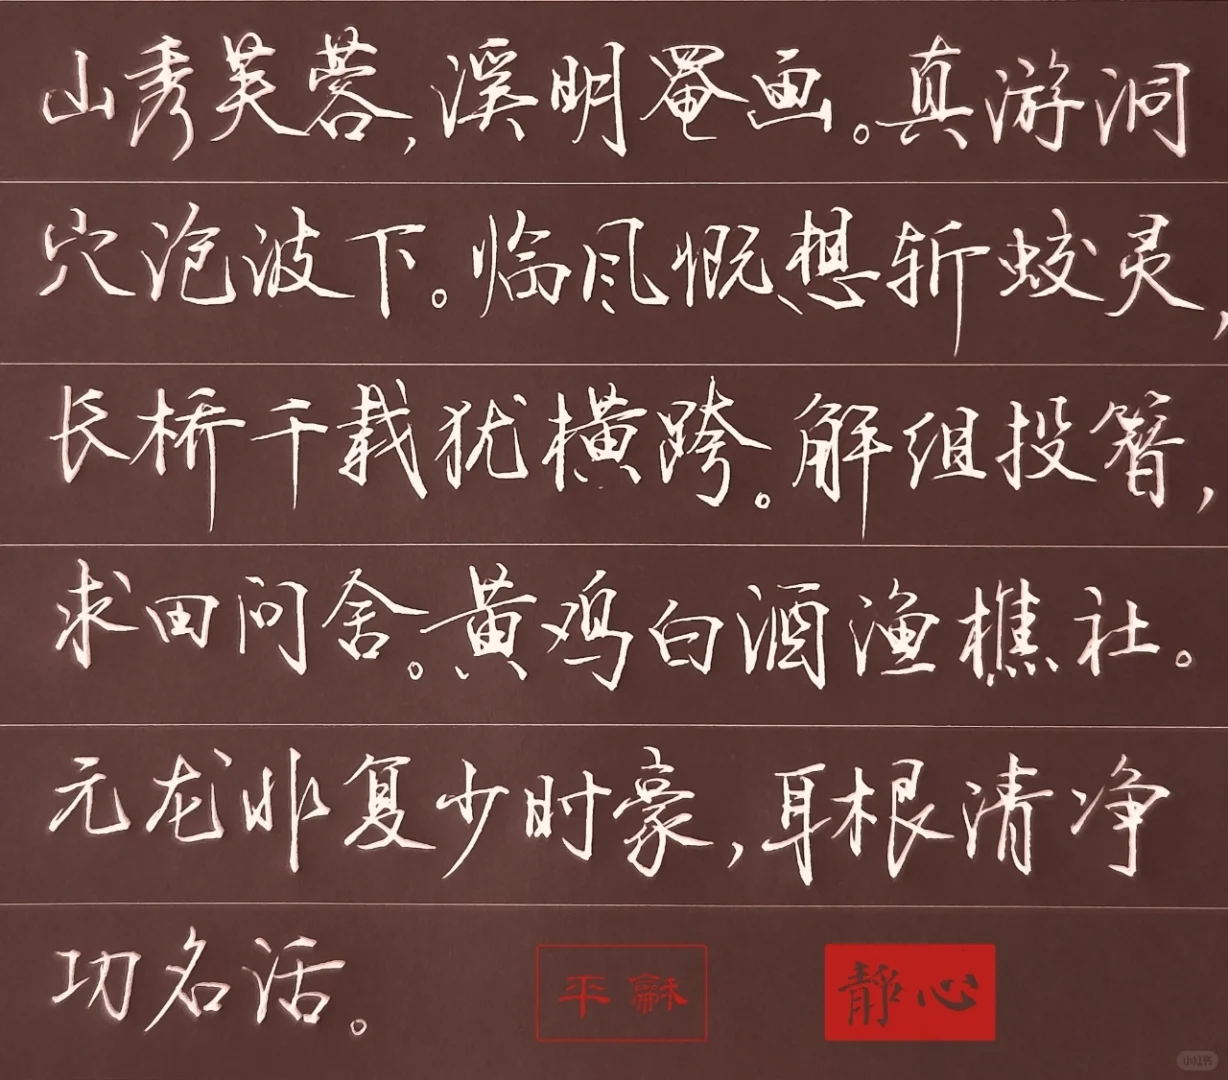 山秀芙蓉,溪明罨画。真游洞
穴沧波下。临风慨想斩蛟灵,
长桥千载犹横跨。解组投簪,
求田问舍。黄鸡白酒渔樵社。
元龙非复少时豪,耳根清净
功名话。
平龢
靜心
小红书